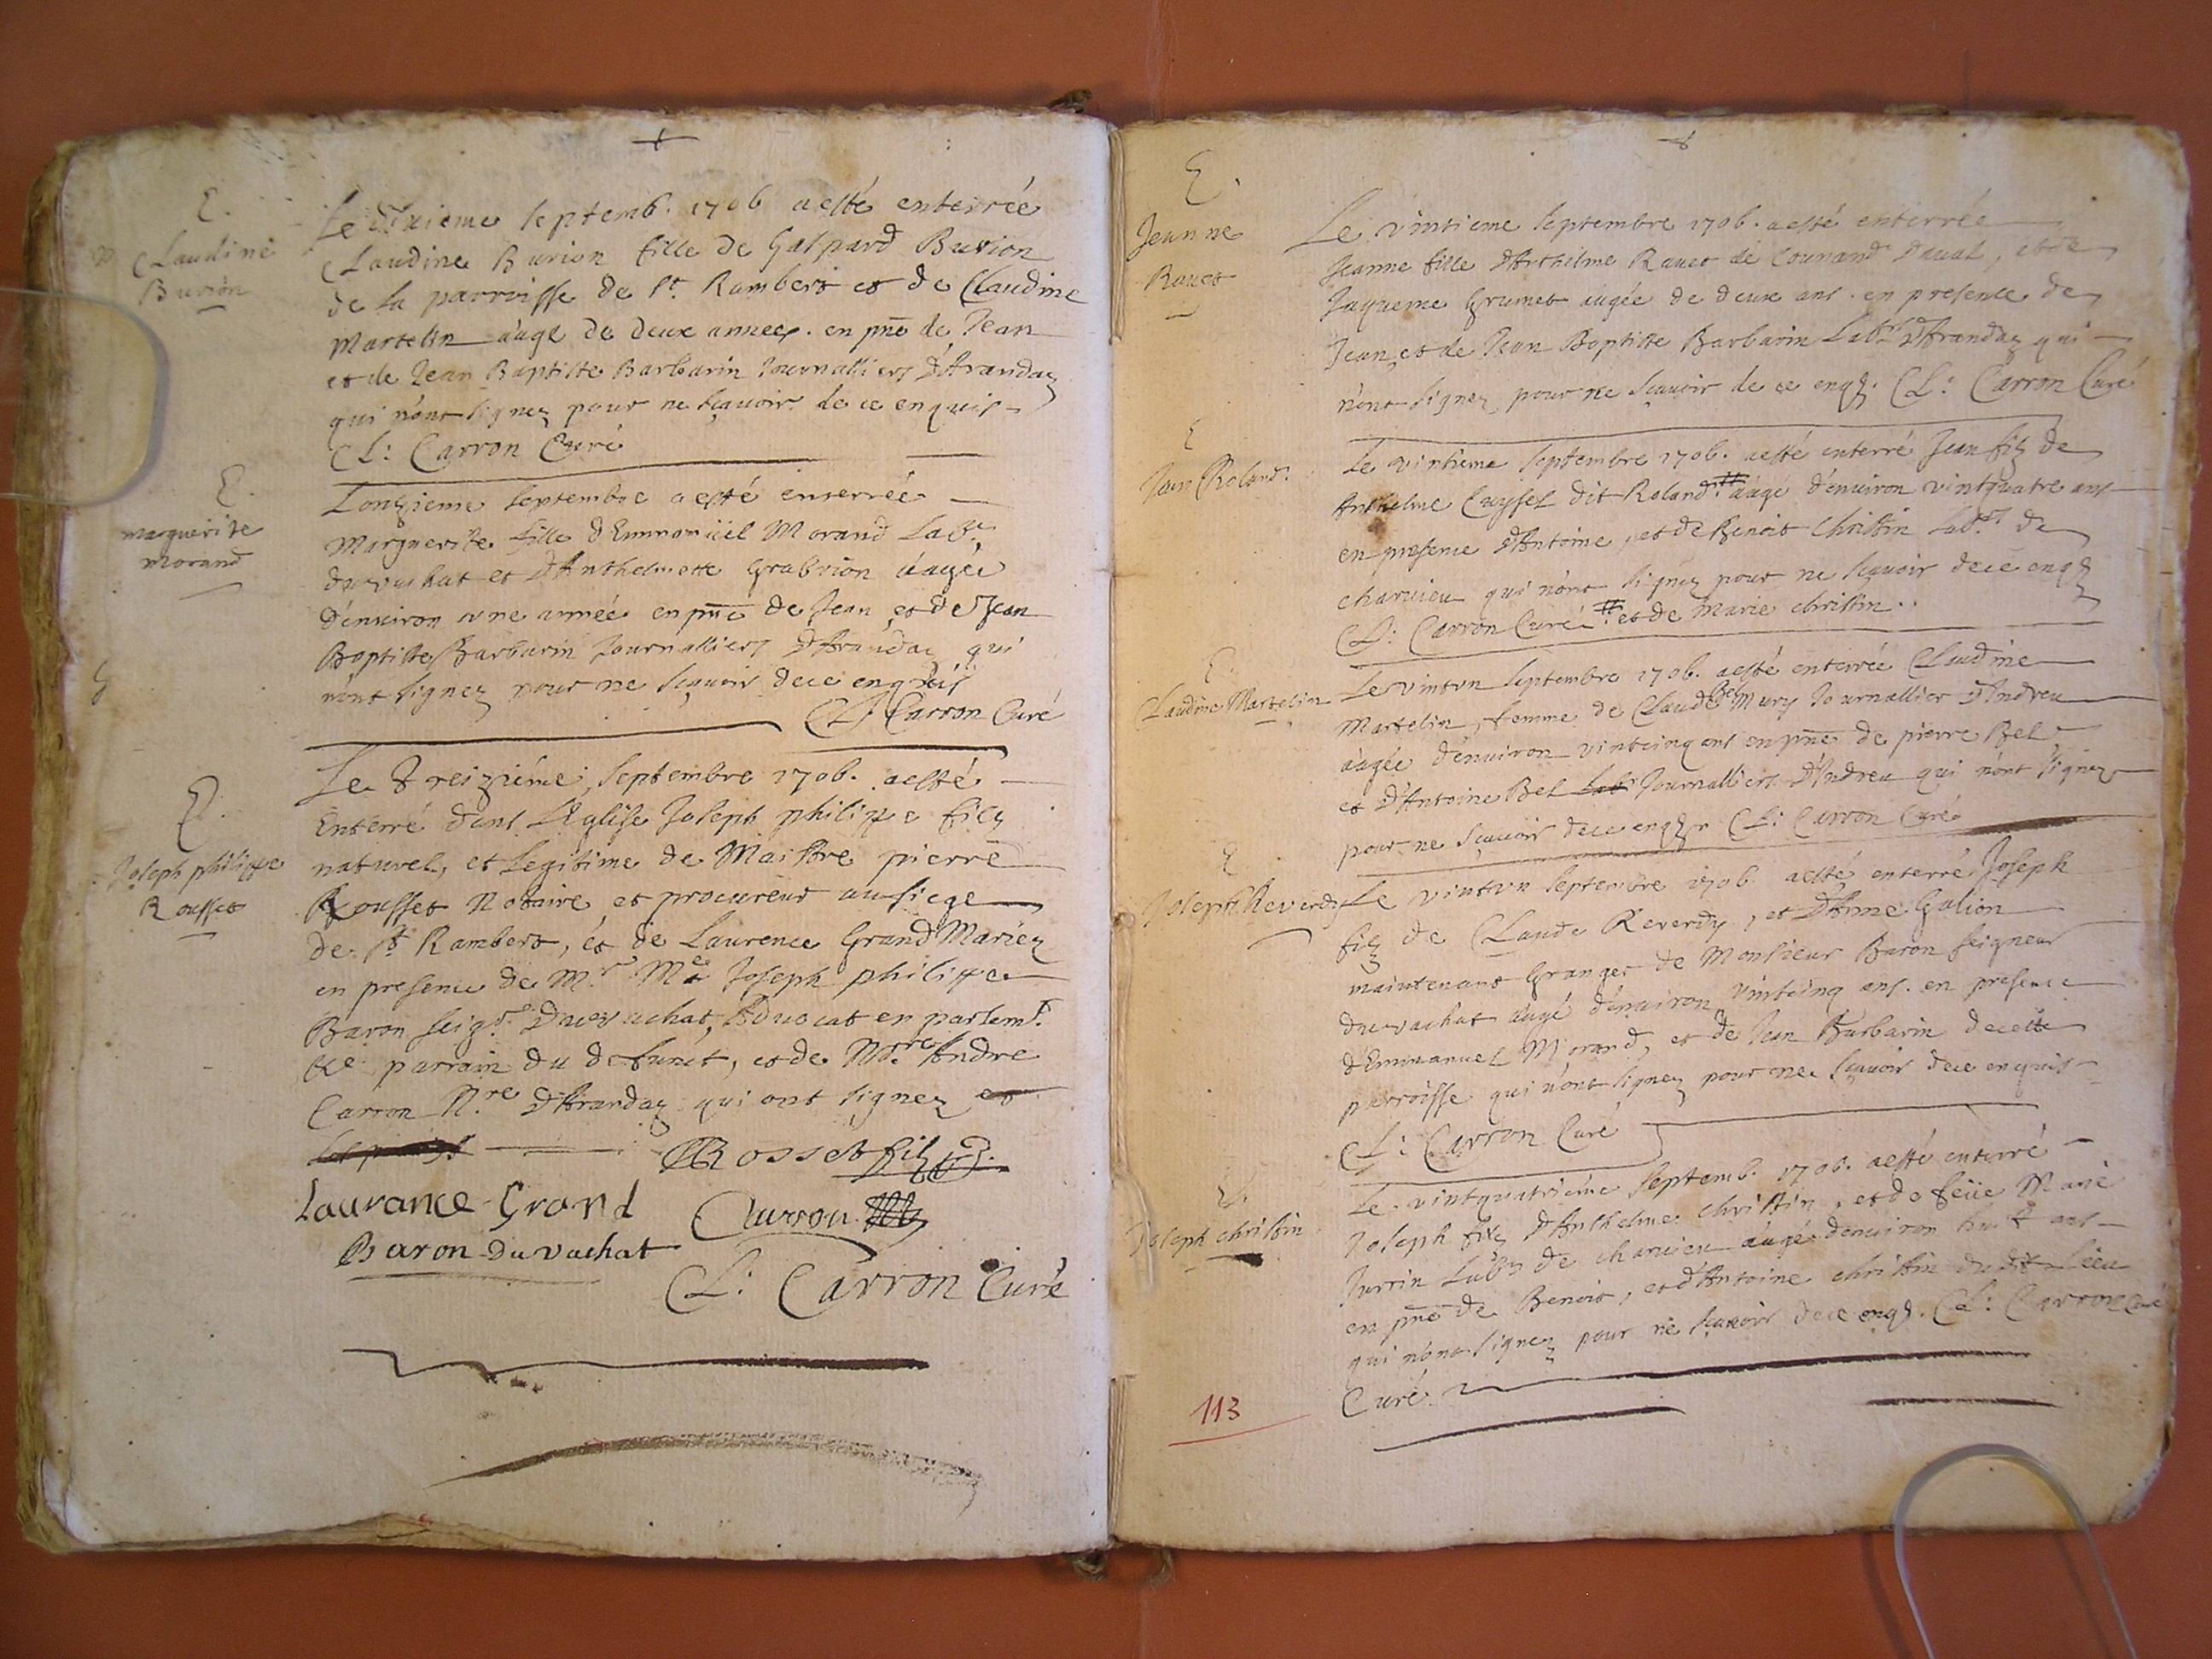 E.
Claudine
Burion
Le dixieme septemb. 1706 a esté enterrée
Claudine Burion fille de Gaspard Burion
de la parroisse de St. Rambert et de Claudine
Martelin aagé de deux annees. en pnce de Jean
et de Jean Baptiste Barbarin Journalliers d'Arandaz
qui n'ont signez pour ne sçavoir de ce enquis
Cl: Carron Curé
E.
marguerite
morand
L'onzieme septembre a esté enterrée
Marguerite fille d'Emmanüel Morand Labr.
du vachat et d'Anthelmette Grabrion aagée
d'environ une année en pnce de Jean et de Jean
Baptiste Barbarin Journalliers d'Arandaz qui
n'ont signez pour ne sçavoir de ce enquis
Cl: Carron Curé
E.
Joseph philippe
Rousset
Le Treizième septembre 1706. a esté
Enterré dans L'Eglise Joseph philippe filz
naturel, et Legitime de Maistre pierre
Rousset Notaire et procureur au siege
de St. Rambert, et de Laurence Grand Mariez
en presence de Mr. Me Joseph philippe
Baron seigr. Du vachat, Advocat en parlemt.
parrain du defunct, et de Andre
Carron Nre. d'Arandaz qui ont signez et
Rosset filz
Laurance Grand
Carron
Baron Du vachat
Cl: Carron Curé
E.
Jeanne
Ravet
Le vintieme septembre 1706. a esté enterrée
Jeanne fille d'Anthelme Ravet de Counand d'aval, et de
Jaqueme Grumet aagée de deux ans. en presence de
Jean, et de Jean Baptiste Barbarin Labrs. d'Arandaz qui
n'ont signez pour ne sçavoir de ce enqs. Cl: Carron Curé
E
Jean Roland.
Le vintieme septembre 1706. a esté enterré Jean filz de
Anthelme Cuyset dit Roland # aagé d'environ vintquatre ans
en presence d'Antoine, et de Benoit Christin Labrs. de
charvieu qui n'ont signez pour ne sçavoir de ce enqs
Cl: Carron Curé # et de Marie christin..
E.
Claudine Martelin
Le vintun septembre 1706. a esté enterrée Claudine
Martelin, femme de Claude Bel Mury Journallier d'Indreu
aagée d'environ vintcinq ans en pnce de pierre Bel
et d'Antoine Bel Journalliers d'Indreu qui n'ont signez
pour ne sçavoir de ce enqs Cl: Carron Curé
E
Joseph Reverdy
Le vintun septembre 1706. a esté enterré Joseph
filz de Claude Reverdy, et d'Anne Galion
maintenant Granger de Monsieur Baron seigneur
du vachat aagé d'environ vintcinq ans. en presence
d'Emmanuel Morand, et de Jean Barbarin de cette
parroisse qui n'ont signez pour ne sçavoir de ce enquis
Cl: Carron Curé
E.
Joseph christin
Le vintquatriéme septemb. 1706. a esté enterré
Joseph filz d'Anthelme christin, et de feüe Marie
Jurrin Labr de charvieu aagé d'environ huit ans
en pnce de Benoit, et d'Antoine christin dudit Lieu
qui n'ont signez pour ne sçavoir de ce enqs. Cl: Carron Curé
Curé
113